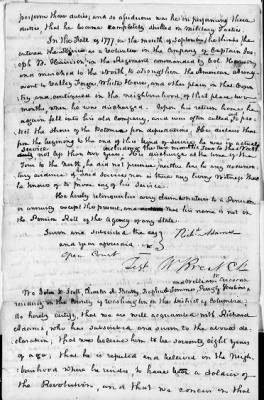 perform these duties; and so assiduous was he in performing these
duties, that he became completely skilled in military tactics
In the Fall of 1777 in the month of September, he thinks he
entered the service as a Volunteer in the Company of Captain
in the Regiment commanded by Col.
and marched to the North to strengthen the American army
went to Valley Forge, White Plains, and other places in that Coun
try, and continued in the neighbourhood of that place
months when he was discharged. Upon his return home he
again fell into his old company, and was often called to pro
tect the shore of the Potomac from depredations. He declares that
from the beginning to the end of this kind of service, he was in actual
service not less than two years. His discharge at the time of the
Tour to the North, he did not preserve, neither has he any documen
tary evidence of said service nor is there any living Witness that
he knows of to prove any of his service.
He hereby relinquishes every claim whatever to a Pension
or annuity except the present, and his name is not on
the Pension Roll of the Agency of any state.
Sworn and subscribed the day
and year aforesaid
Open Court
Test
We John
residing in the County of Washington in the District of Columbia
do hereby certify, that we are well acquainted with Richard
Adams who has subscribed and sworn to the above de
claration, that we believe him to be seventy eight years
of age; that he is reputed and believed in the neigh
bourhood where he resides to have been a soldier of
the Revolution, and that we concur in that